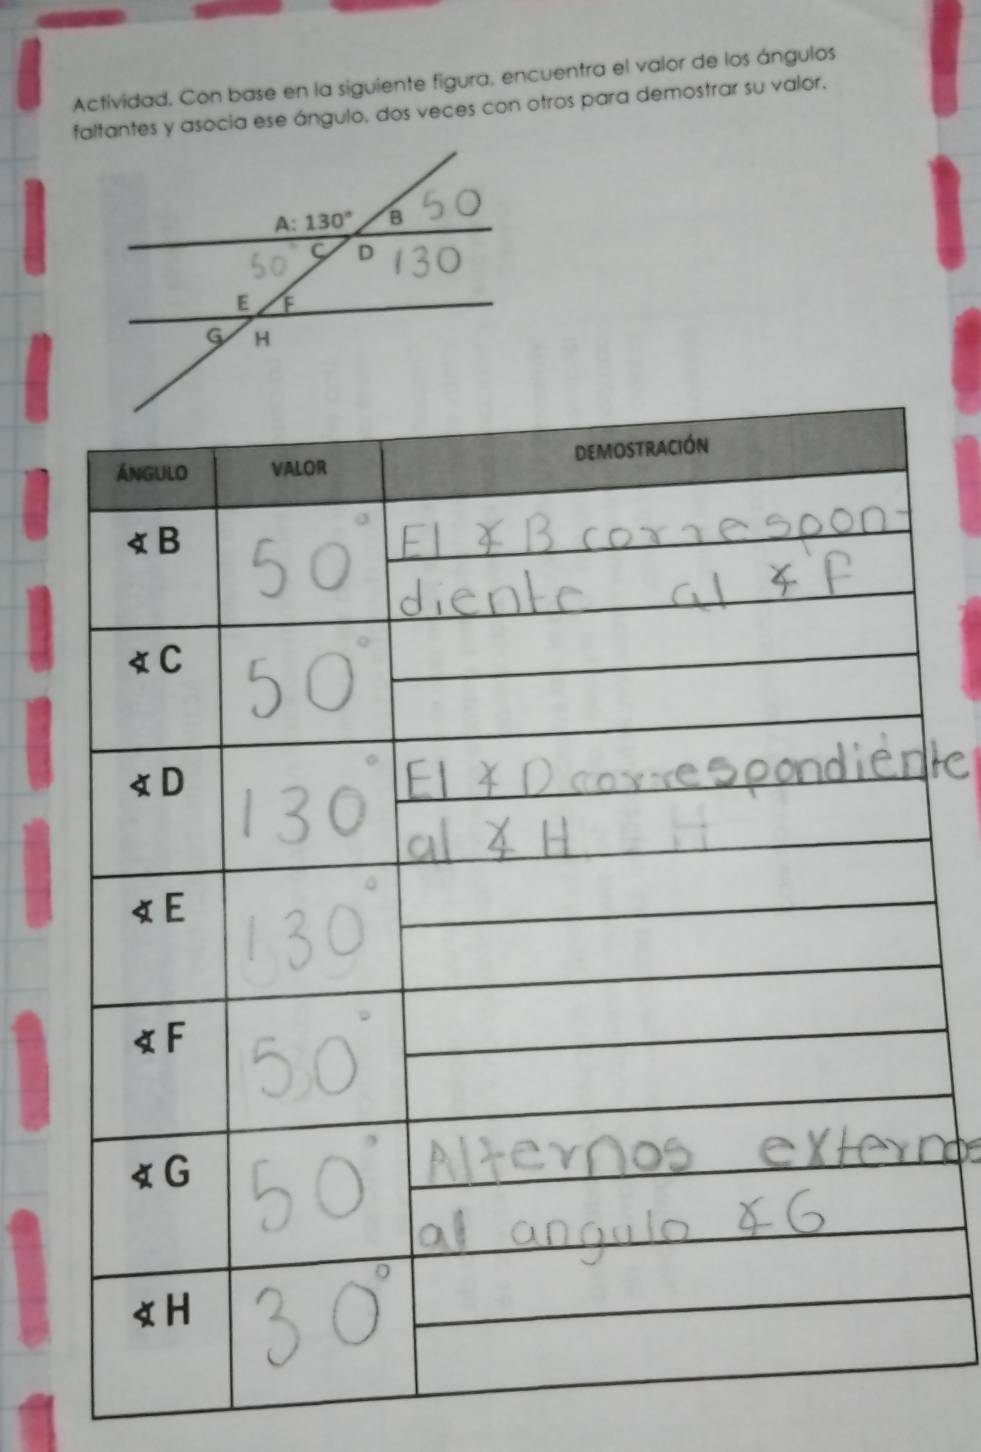 Actividad. Con base en la siguiente figura, encuentra el valor de los ángulos
faltantes y asocia ese ángulo, dos veces con otros para demostrar su valor.
A: 130° B 50
50° C D 130
E F
G H
ÁNGULO VALOR DEMOSTRACIÓN
∢ B 50° El ∢ B correspon-
diente al ∢ F
∢ C 50°
∢ D 130° El ∢ D correspondiente
al ∢ H H
∢ E 130°
∢ F 50°
∢ G 50° Alternos externos
al angulo ∢ G
∢ H 30°